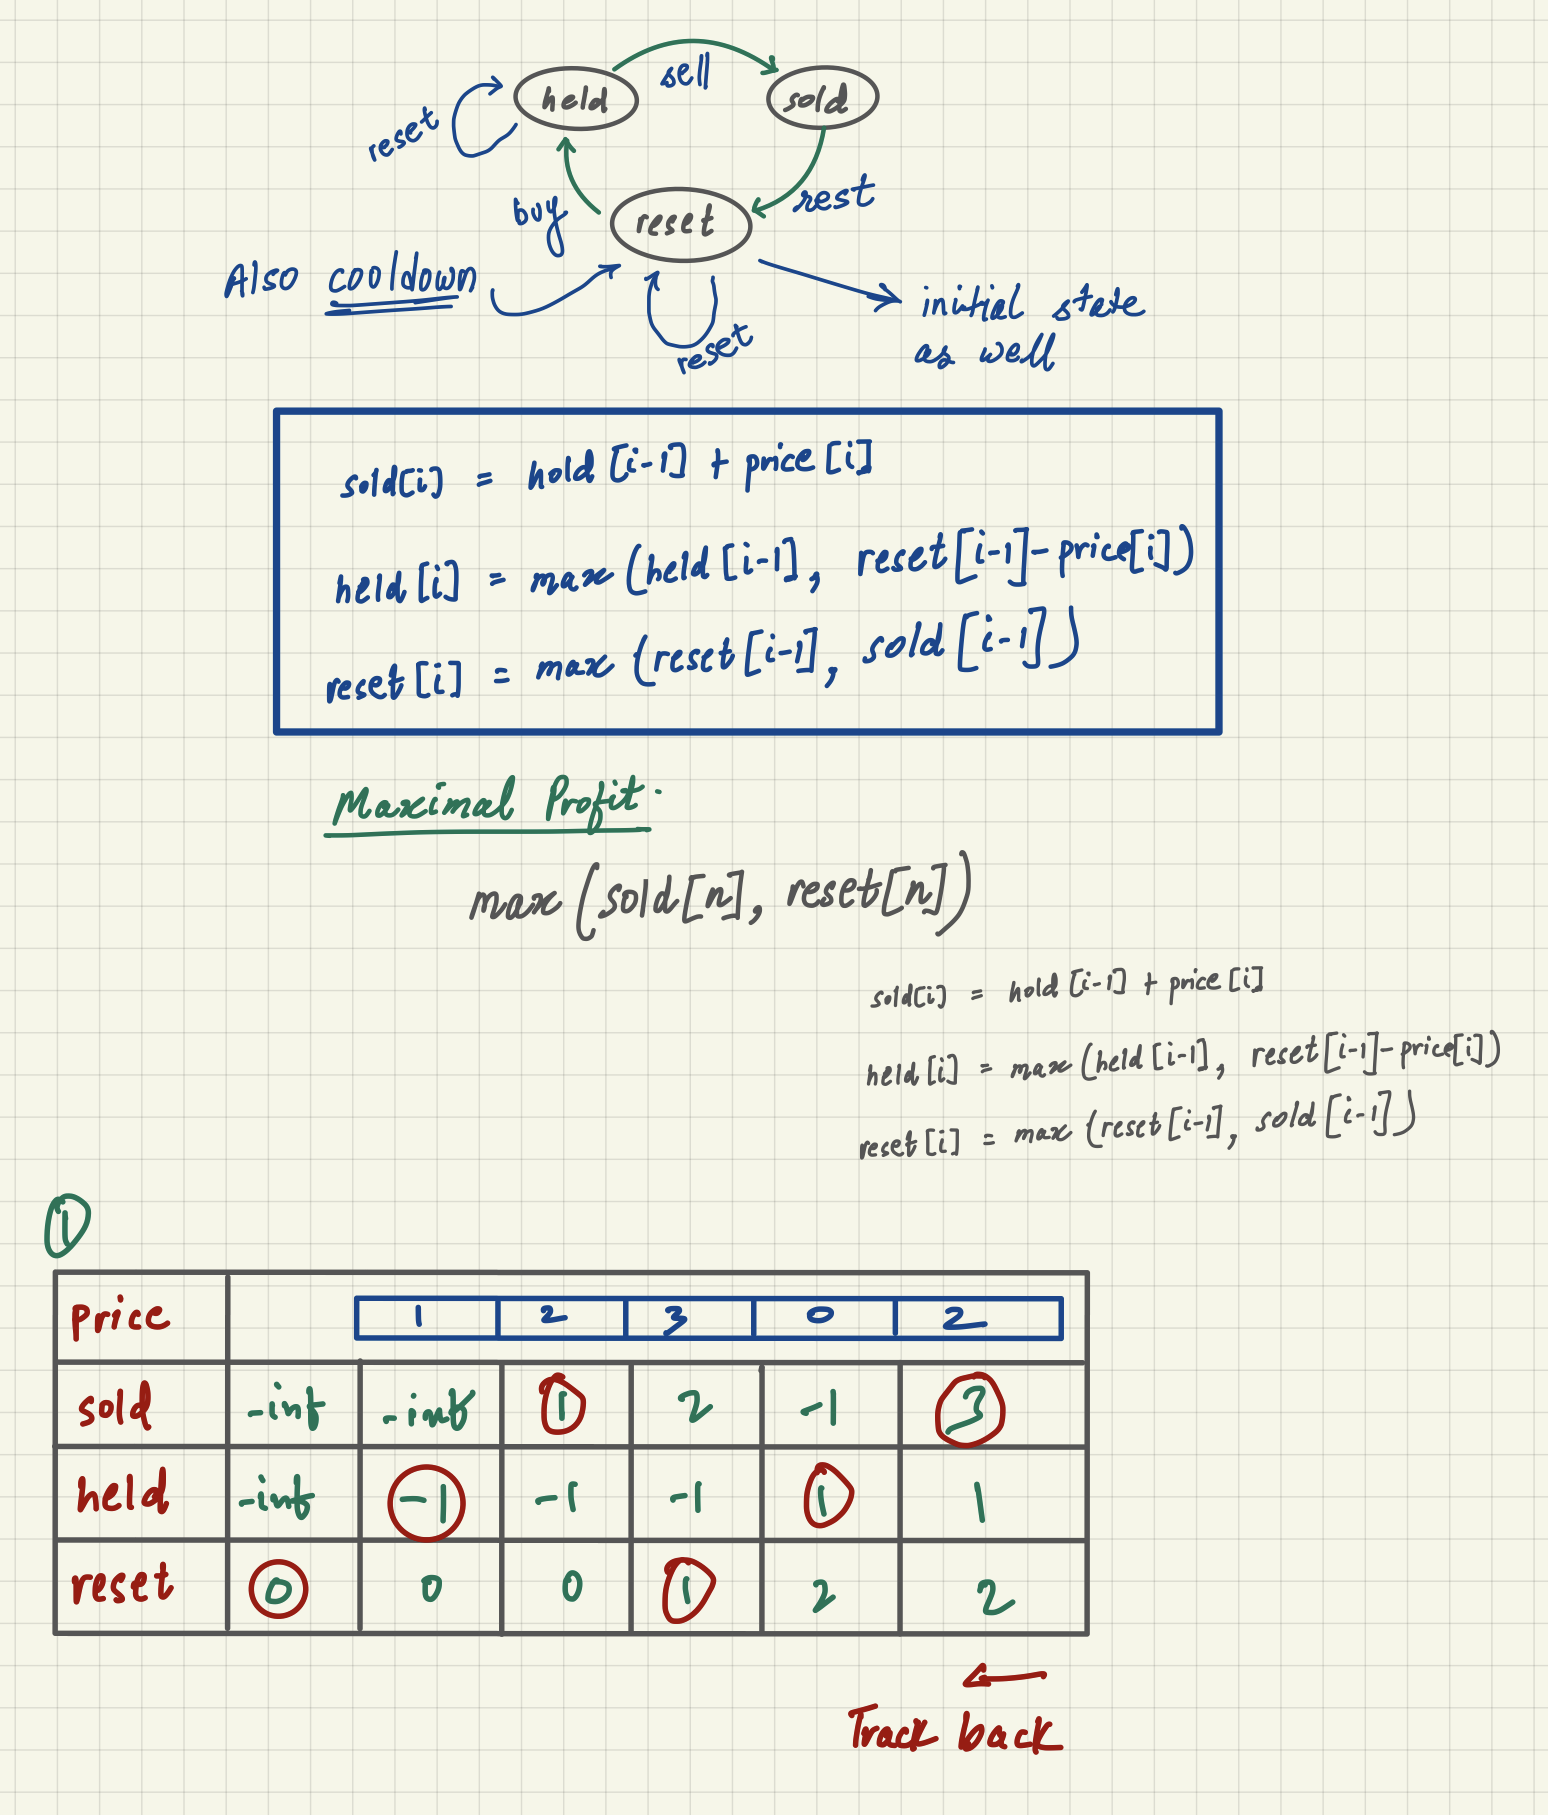 sell
held
sold
reset
rest
buy
reset
Also cooldown
initial state
as well
reset
sold[i] = hold[i-1] + price[i]
held[i] = max(held[i-1], reset[i-1]-price[i])
reset[i] = max(reset[i-1], sold[i-1])
Maximal Profit.
max(sold[n], reset[n])
sold[i] = hold[i-1] + price[i]
held[i] = max(held[i-1], reset[i-1]-price[i])
reset[i] = max(reset[i-1], sold[i-1])
1
Price 1 2 3 0 2
sold -int -int 1 2 -1 3
held -int -1 -1 -1 1 1
reset 0 0 0 1 2 2
Track back